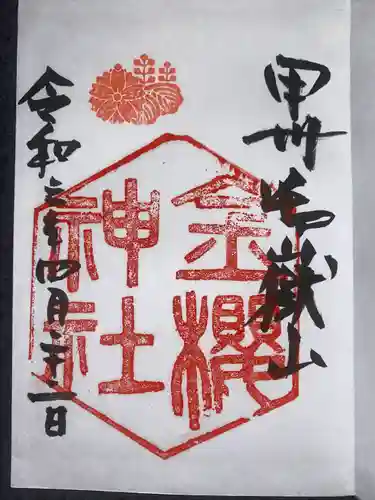 甲州御嶽山
金櫻
神社
令和 年四月 日